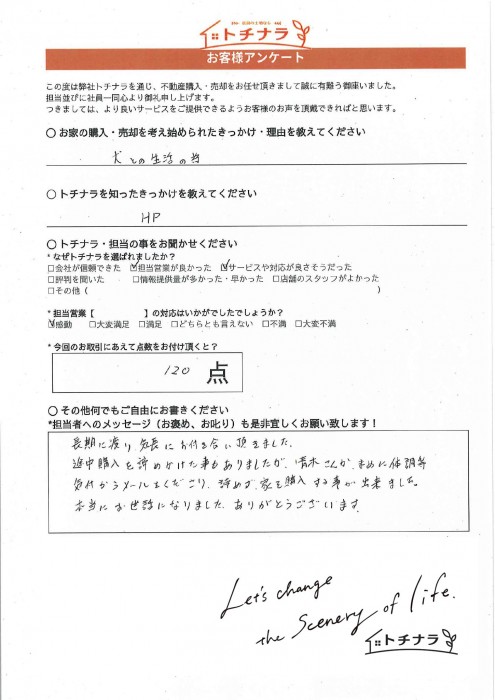 トチナラ
お客様アンケート
この度は弊社トチナラを通じ、不動産購入・売却をお任せ頂きまして誠に有難う御座いました。
担当並びに社員一同心より御礼申し上げます。
つきましては、より良いサービスをご提供できるようお客様のお声を頂戴できればと思います。
〇 お家の購入・売却を考え始められたきっかけ・理由を教えてください
犬との生活の為
〇 トチナラを知ったきっかけを教えてください
HP
〇 トチナラ・担当の事をお聞かせください
*なぜトチナラを選ばれましたか？
□会社が信頼できた ☑担当営業が良かった ☑サービスや対応が良さそうだった
□評判を聞いた □情報提供量が多かった・早かった □店舗のスタッフがよかった
□その他（ ）
*担当営業【 】の対応はいかがでしたでしょうか？
☑感動 □大変満足 □満足 □どちらとも言えない □不満 □大変不満
*今回のお取引にあえて点数をお付け頂くと？
120 点
〇 その他何でもご自由にお書きください
*担当者へのメッセージ（お褒め、お叱り）も是非宜しくお願い致します！
長期に渡り、気長にお付き合い頂きました。
途中購入を諦めかけた事もありましたが、清木さんが、まめに体調等
気付かうメールをくださり、諦めず、家を購入する事が出来ました。
本当にお世話になりました。ありがとうございます。
Let's change
the Scenery of life.
トチナラ